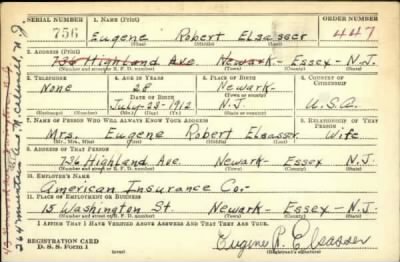 SERIAL NUMBER 1. NAME (Print) ORDER NUMBER
756 Eugene Robert Elsasser 447
(First) (Middle) (Last)
2. ADDRESS (Print)
736 Highland Ave. Newark - Essex - N.J.
(Number and street or R. F. D. number) (Town) (County) (State)
3. TELEPHONE 4. AGE IN YEARS 5. PLACE OF BIRTH 6. COUNTRY OF CITIZENSHIP
None 28 Newark -
DATE OF BIRTH (Town or county)
July-23-1912 N.J. U.S.A.
(Exchange) (Number) (Mo.) (Day) (Yr.) (State or country)
7. NAME OF PERSON WHO WILL ALWAYS KNOW YOUR ADDRESS 8. RELATIONSHIP OF THAT PERSON
Mrs. Eugene Robert Elsasser. Wife
(Mr., Mrs., Miss) (First) (Middle) (Last)
9. ADDRESS OF THAT PERSON
736 Highland Ave. Newark - Essex N.J.
(Number and street or R. F. D. number) (Town) (County) (State)
10. EMPLOYER'S NAME
American Insurance Co.
11. PLACE OF EMPLOYMENT OR BUSINESS
15 Washington St. Newark - Essex - N.J.
(Number and street or R. F. D. number) (Town) (County) (State)
I AFFIRM THAT I HAVE VERIFIED ABOVE ANSWERS AND THAT THEY ARE TRUE.
REGISTRATION CARD
D. S. S. Form 1 (over) Eugene R. Elsasser
264 Mountain Ave., N. Caldwell, N.J.